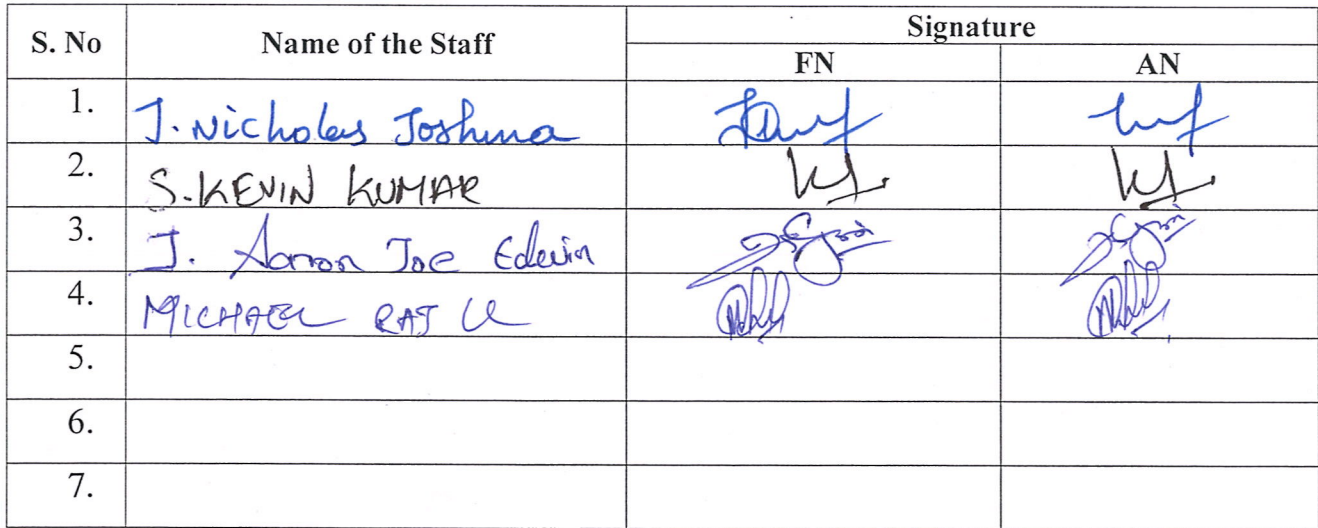 S. No Name of the Staff Signature
FN AN
1. J. Nicholas Joshua
2. S. KEVIN KUMAR
3. J. Aaron Joe Edwin
4. MICHAEL RAJ
5.
6.
7.